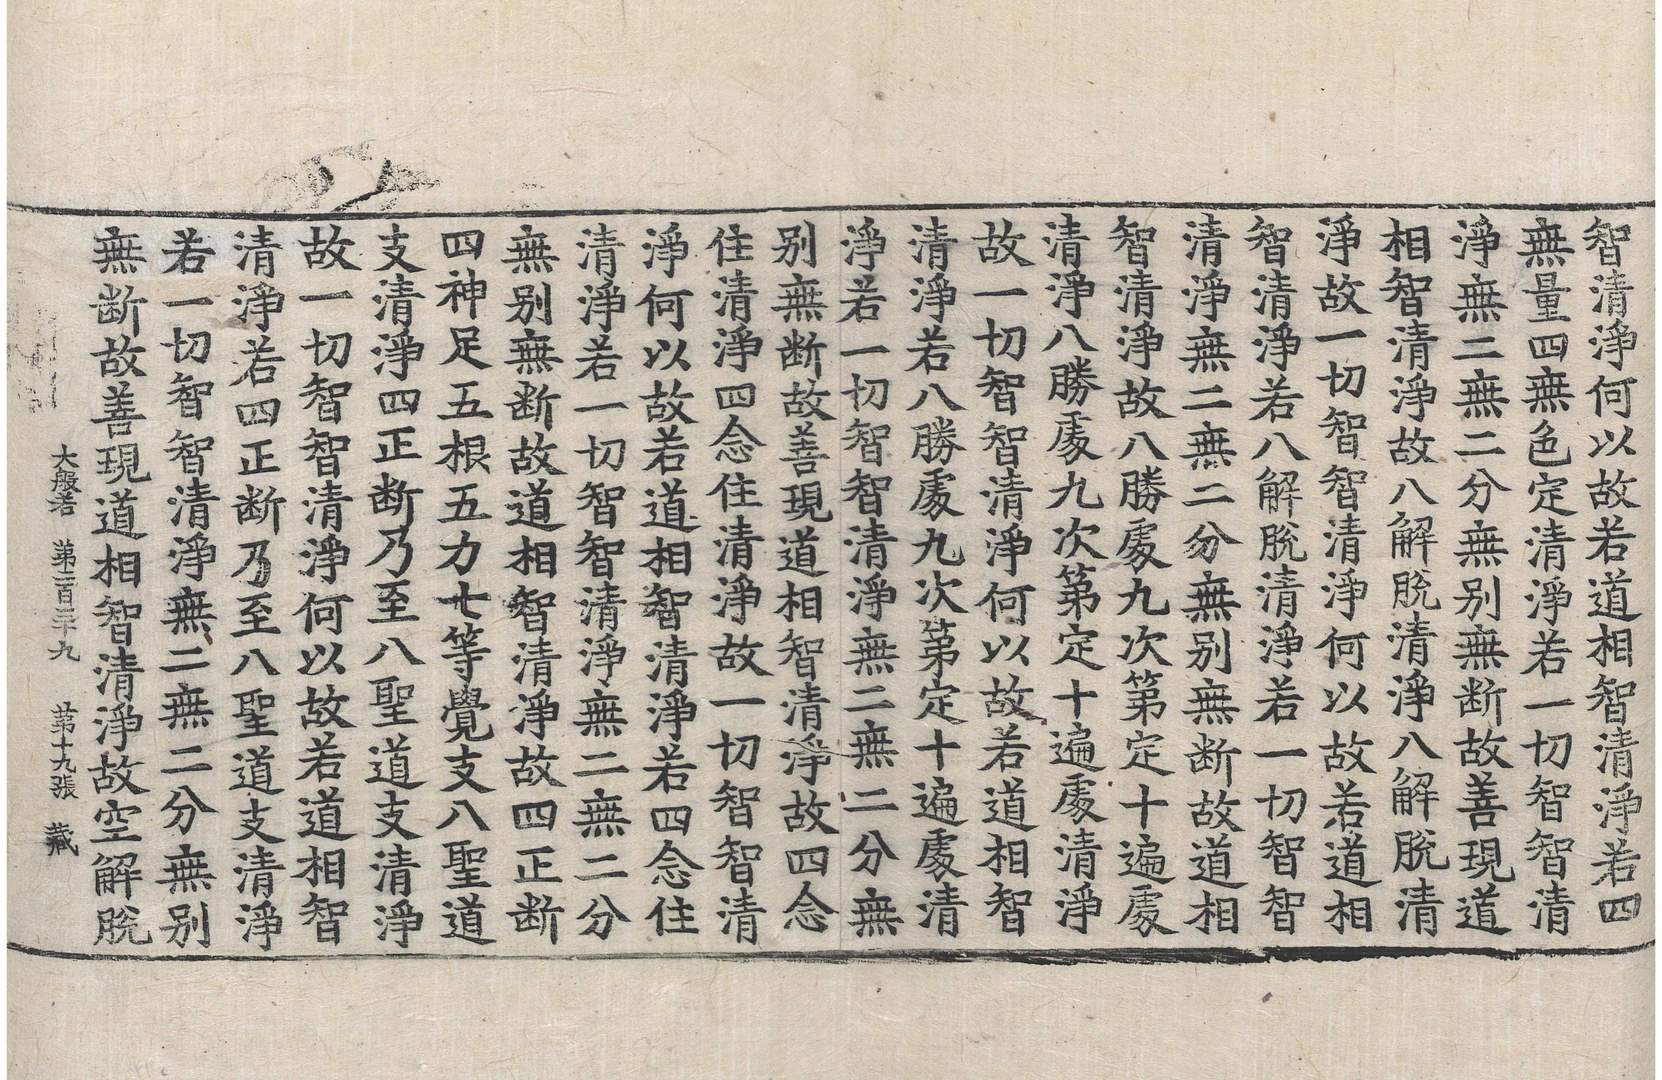 智清淨何以故若道相智清淨若四
無量四無色定清淨若一切智智清
淨無二無二分無別無断故善現道
相智清淨故八解脫清淨八解脫清
淨故一切智智清淨何以故若道相
智清淨若八解脫清淨若一切智智
清淨無二無二分無別無断故道相
智清淨故八勝處九次第定十遍處
清淨八勝處九次第定十遍處清淨
故一切智智清淨何以故若道相智
清淨若八勝處九次第定十遍處清
淨若一切智智清淨無二無二分無
別無断故善現道相智清淨故四念
住清淨四念住清淨故一切智智清
淨何以故若道相智清淨若四念住
清淨若一切智智清淨無二無二分
無別無断故道相智清淨故四正断
四神足五根五力七等覺支八聖道
支清淨四正断乃至八聖道支清淨
故一切智智清淨何以故若道相智
清淨若四正断乃至八聖道支清淨
若一切智智清淨無二無二分無別
無断故善現道相智清淨故空解脫
大般若 第二百三十九 第十九張 藏